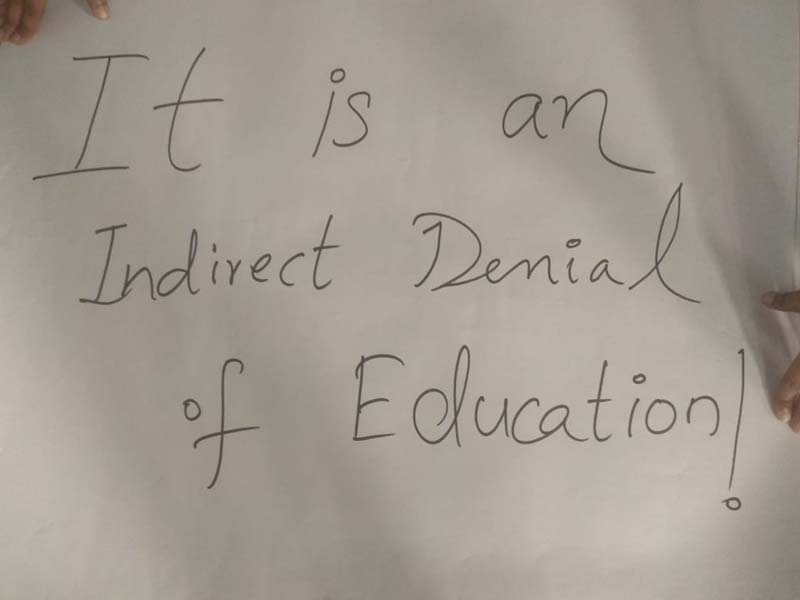 It is an
Indirect Denial
of Education!